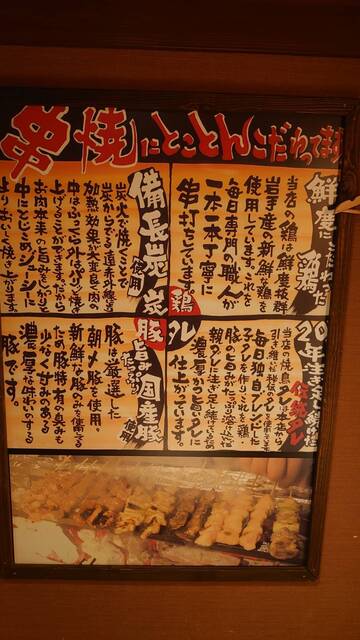 串焼にとことんこだわってます
鮮度にこだわった
鶏
当店の鶏は鮮度抜群
岩手産の新鮮な鶏を
使用しています。これを
毎日専門の職人が
一本一本丁寧に
串打ちしています。
鶏
備長炭
使用
炭
炭火で焼くことで
炭からでる遠赤外線等の
加熱効果が大変良く肉の
中はふっくら外はパリッと焼き
上げることができます。だから
お肉本来の旨みをしっかりと
中にとじこめジューシーに
よりおいしく焼き上がります。
伝統タレ
タレ
当店の焼鳥のタレは
毎日独自ブレンドした
子タレを作り、これを鶏・
濃厚かつ旨いタレに
仕上がっています。
豚
旨み
国産豚
使用
豚は厳選した
朝〆豚を使用。
新鮮な豚のみを使用してる
ため豚特有の臭みも
少なく甘みのある
濃厚な味わいのする
豚です。